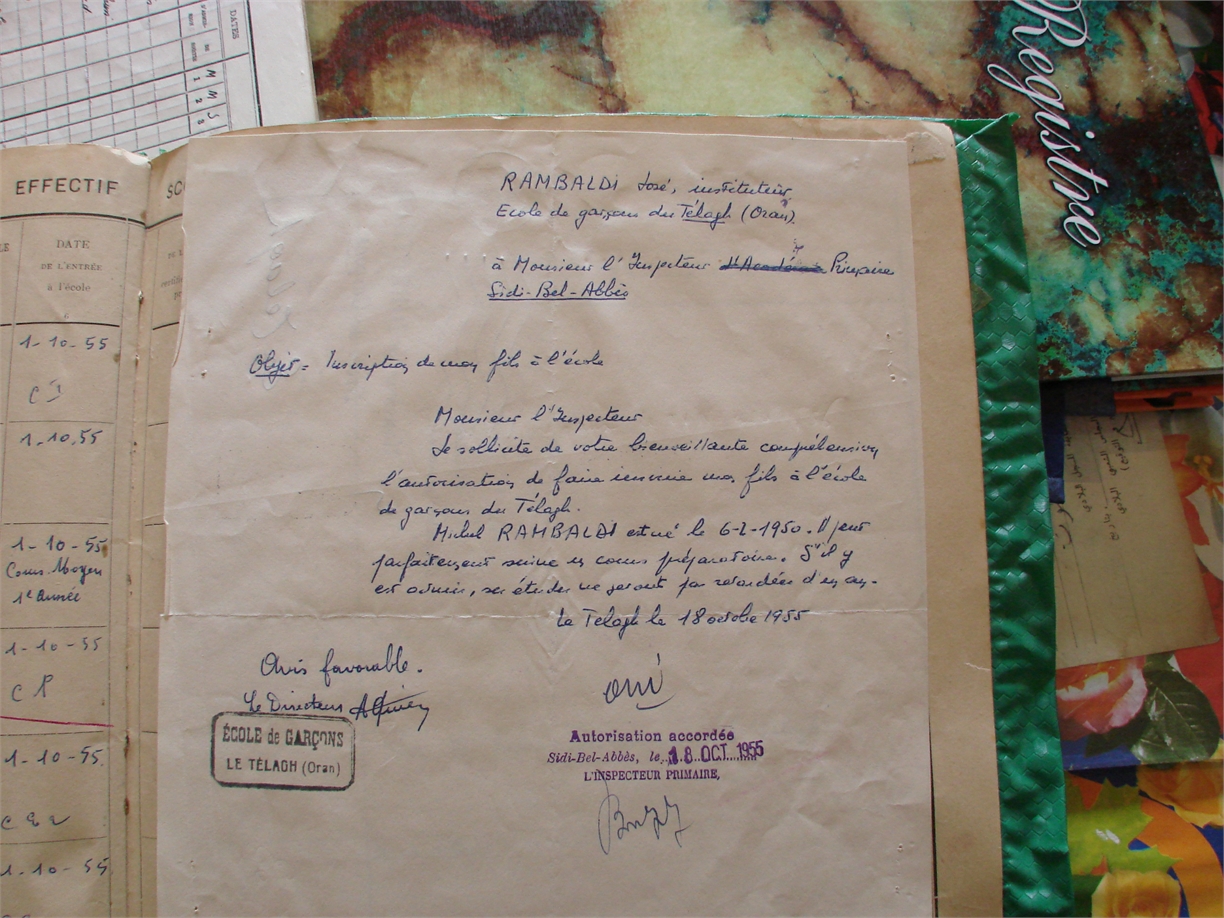 DATES
M M J
1 2 8
Registre
EFFECTIF
DATE
DE L'ENTRÉE
à l'école
6
1-10-55
1-10.55
1-10-55
Cours Moyen
1e année
1-10-55
CP
1-10-55
1-10-55
RAMBALDI José, instituteur
Ecole de garçons du Télagh (Oran)
à Monsieur l'Inspecteur d'Académie Primaire
Sidi-Bel-Abbès
Objet = Inscription de mon fils à l'école
Monsieur l'Inspecteur
Je sollicite de votre bienveillante compréhension
l'autorisation de faire inscrire mon fils à l'école
de garçons du Télagh.
Michel RAMBALDI est né le 6-2-1950. Il peut
parfaitement suivre un cours préparatoire. S'il y
est admis, ses études ne seront pas retardées d'un an.
Le Télagh le 18 octobre 1955
Avis favorable.
Le Directeur
ÉCOLE de GARÇONS
LE TÉLAGH (Oran)
oui
Autorisation accordée
Sidi-Bel-Abbès, le 18 OCT. 1955
L'INSPECTEUR PRIMAIRE,